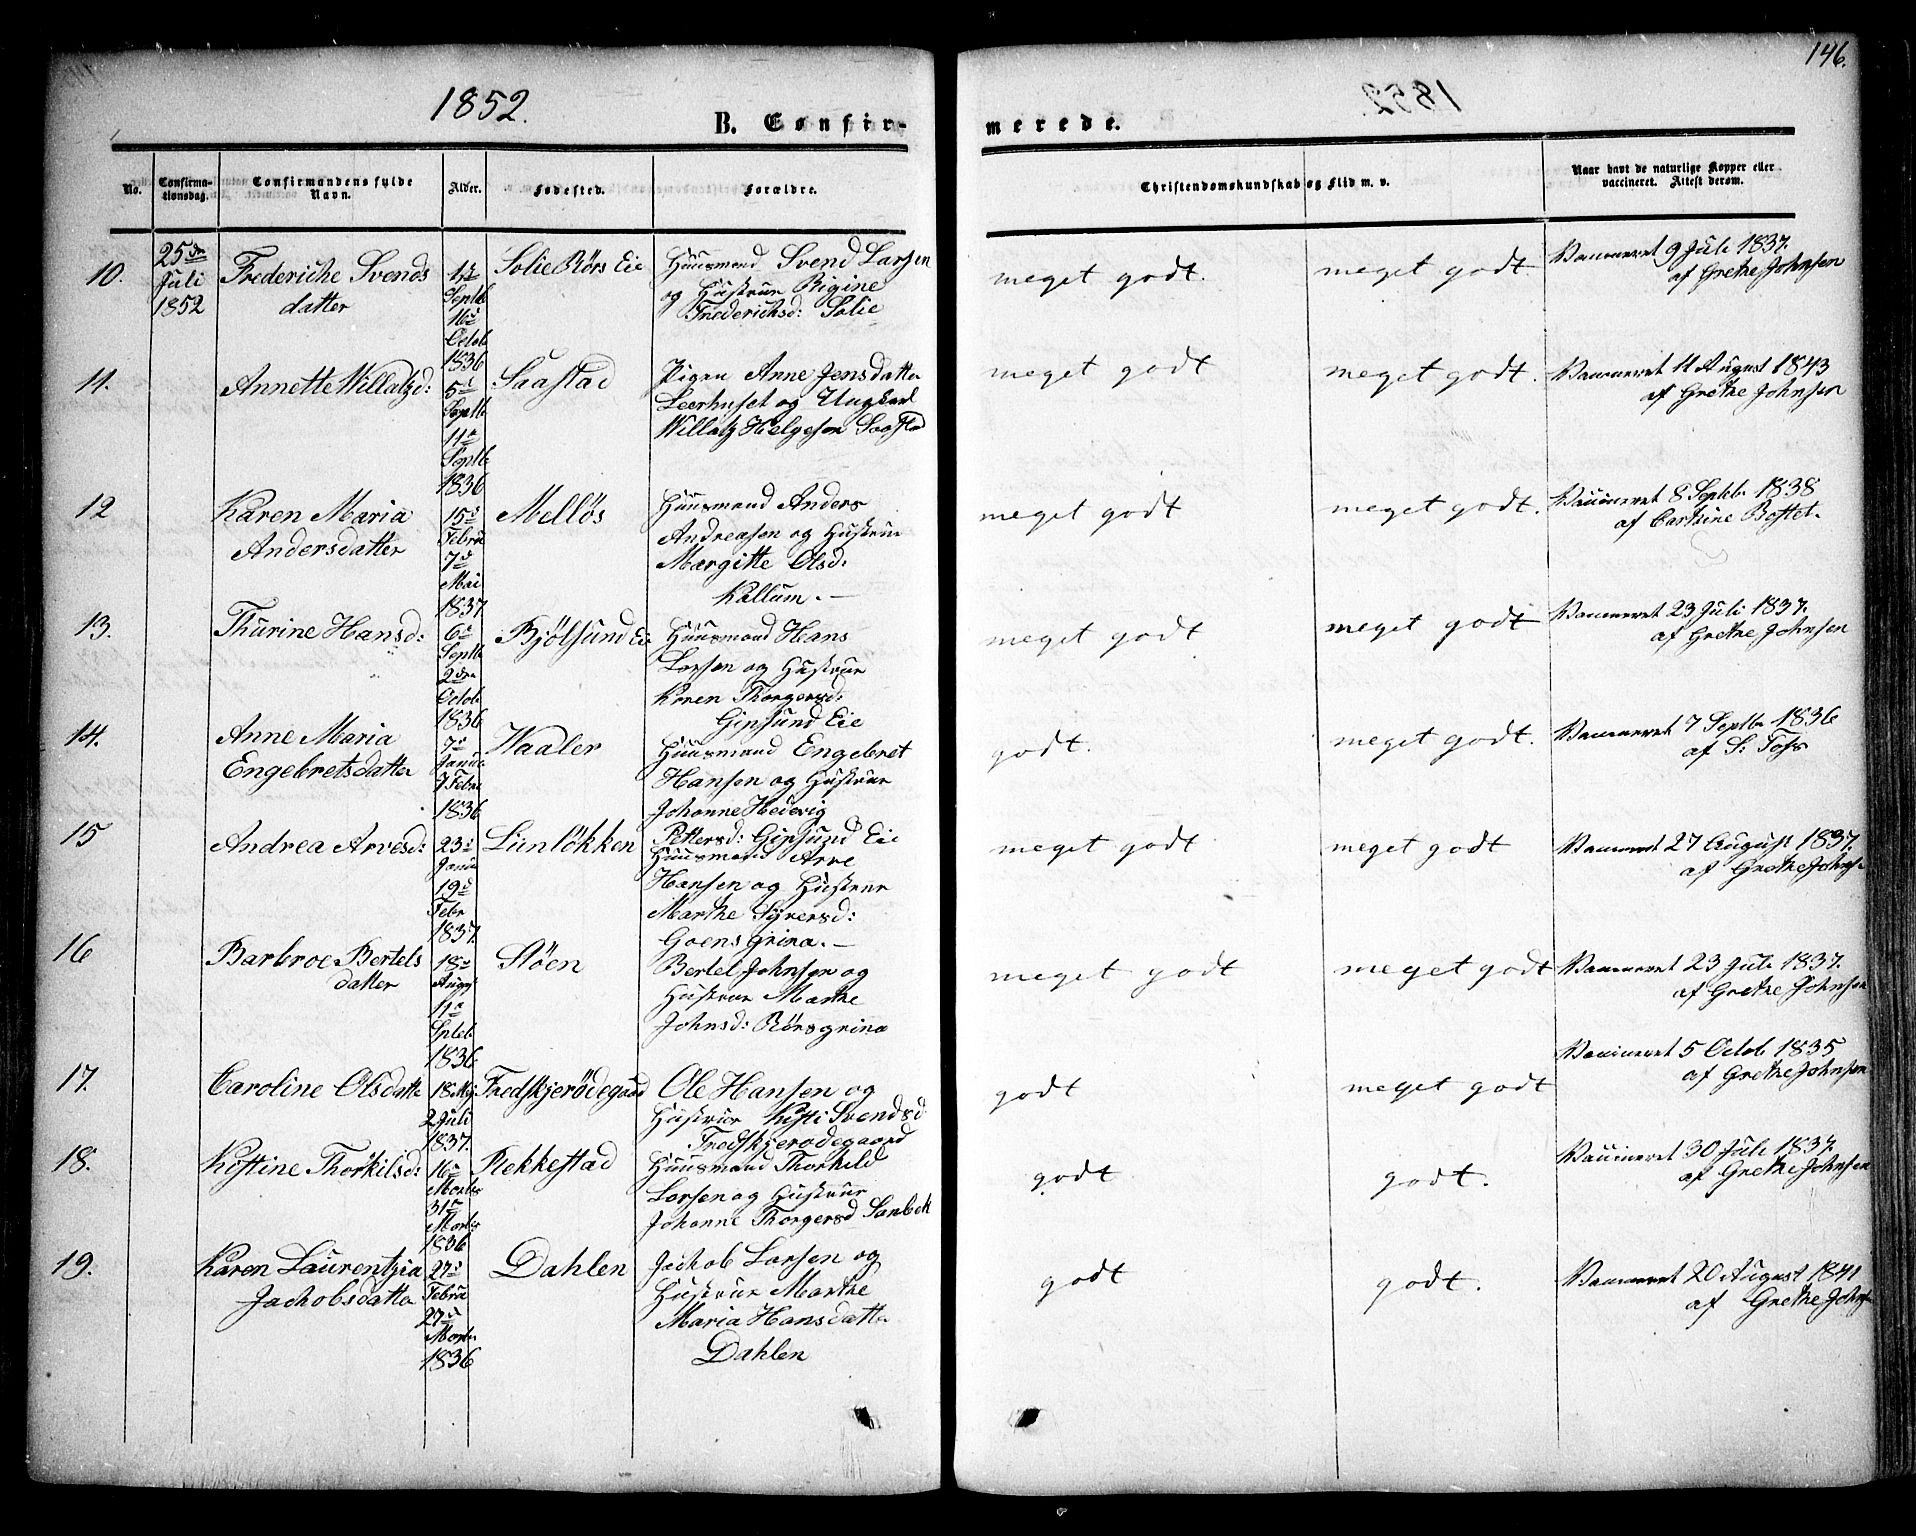 146.
1852.
B. Confir-
merede.
No.
Confirma-
tionsdag.
Confirmandens fulde
Navn.
Alder.
Fødested.
Forældre.
Christendomskundskab og Flid m. v.
Naar havt de naturlige Kopper eller
vaccineret. Attest derom.
10.
25de
Juli
1852
Frederiche Svends
datter
Septb
16d
Octob
1836
Solie Rörs Eie
Huusmand Svend Larsen
og Hustrue Rigine
Frederichsd: Solie
meget godt.
meget godt
Vaccineret 9 Juli 1837.
af Grethe Johnsen
11.
Annette Willatzd:
5d
Septb
11d
Septb
1836
Saastad
Pigen Anne Jensdatter
Leerhuset og Ungkarl
Willatz Helgesen Saastad
meget godt
meget godt.
Vaccineret 11 August 1843
af Grethe Johnsen
12
Karen Maria
Andersdatter
15d
Febru
7d
Mai
1837
Mellös
Huusmand Anders
Andreasen og Hustrue
Margitte Olsd:
Kallum. —
meget godt
meget godt.
Vaccineret 8 Septbr 1838
af
13.
Thurine Hansd:
6d
Septb
2den
Octob
1836
Bjölsund Eie
Huusmand Hans
Larsen og Hustrue
Karen Thorgersd:
Ginsund Eie
meget godt
meget godt
Vaccineret 23 Juli 1837.
af Grethe Johnsen
14.
Anne Maria
Engebretsdatter
7d
Janua
7 Febru
1836
Vaaler
Huusmand Engebret
Hansen og Hustrue
Johanne Hedevig
Pettersd: Ginsund Eie
godt.
meget godt.
Vaccineret 7 Septbr 1836
af S: Foss
15
Andrea Arvesd:
23d
Janu
19d
Febr
1837.
Lienlökken
Huusmand Arve
Hansen og Hustrue
Marthe Syversd:
Goensgrina. —
meget godt
meget godt
Vaccineret 27 August 1837.
af Grethe Johnse
16
Barbroe Bertels
datter
18d
Augs
11d
Spteb
1836
Stöen
Bertel Johnsen og
Hustrue Marthe
Johnsd: Rörsgrina
meget godt
meget godt
Vaccineret 23 Juli 1837.
af Grethe Johnsen
17.
Caroline Olsdatte
18 Maj
2 Juli
1837.
Fredskjerödegaard
Ole Hansen og
Hustrue Kisti Svendsd
Fredskjerödegaard
godt
meget godt
Vaccineret 5 Octob 1835
af Grethe Johnsen
18.
Kistine Thorkilsd:
16d
Marts
31d
Marts
1836
Rekkestad
Huusmand Thorkild
Larsen og Hustrue
Johanne Thorgersd Sanbek
godt
godt.
Vaccineret 30 Juli 1837.
af Grethe Johnsen
19.
Karen Laurentzia
Jachobsdatter
27d
Febru
27d
Marts
1836
Dahlen
Jachob Larsen og
Hustrue Marthe
Maria Hansdatte
Dahlen
godt
godt.
Vaccineret 20 August 1841
af Grethe Johnse